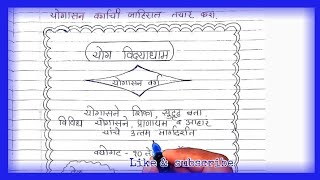 योगासन वर्गाची जाहिरात तयार करा.
योग विद्याधाम
योगासन वर्ग
योगासने शिका, सुदृढ बना
विविध योगासने, प्राणायाम व आहार
यांचे उत्तम मार्गदर्शन
वयोगट - १० ते
Like & subscribe